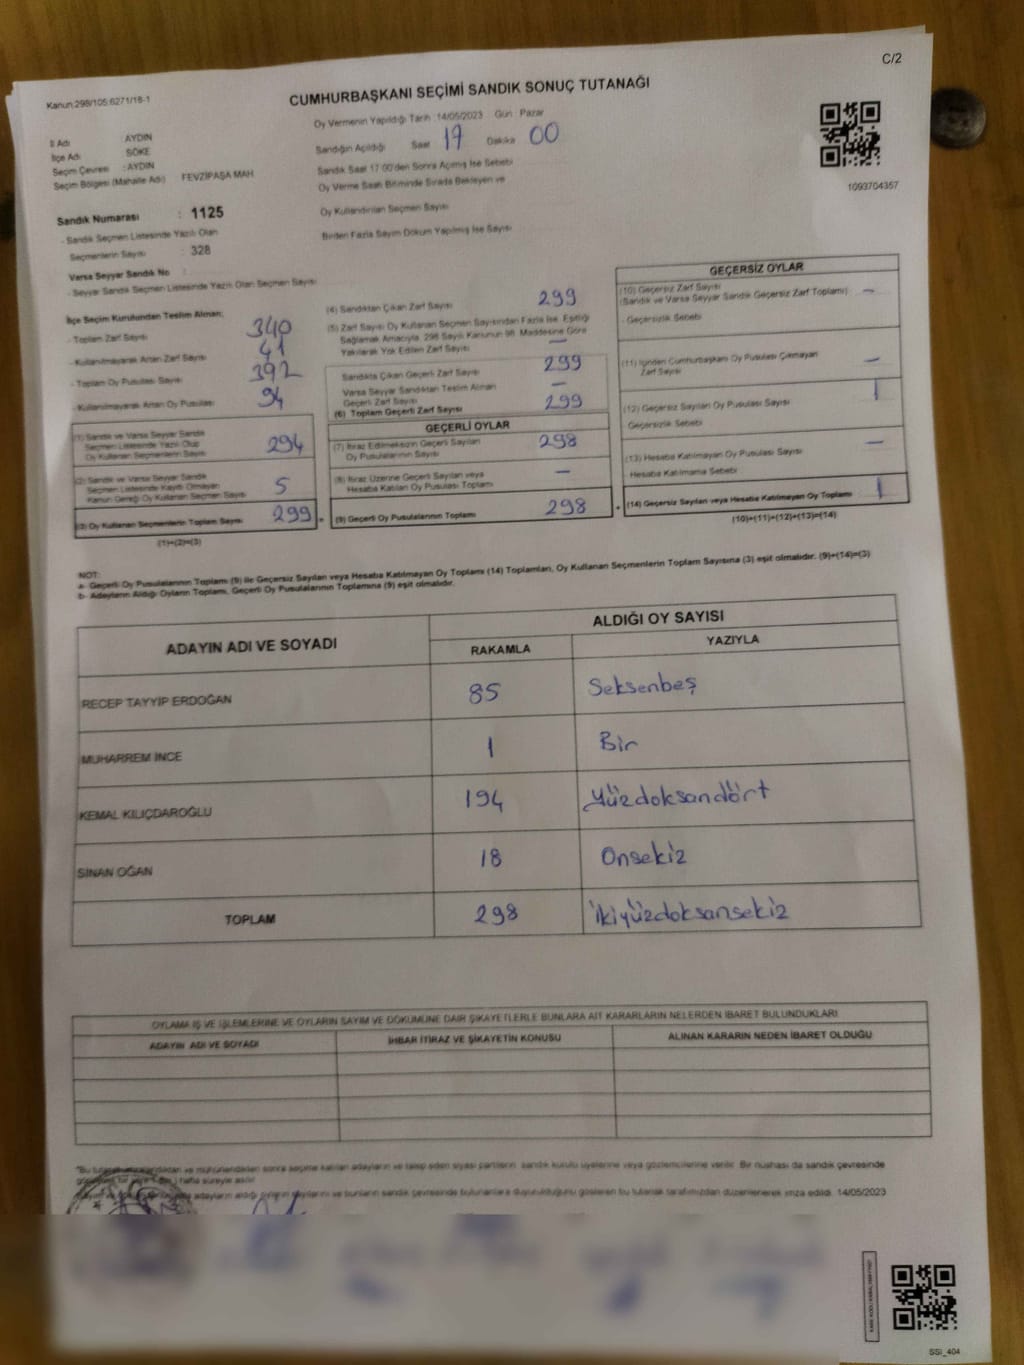 C/2
Kanun:298/105;6271/18-1
CUMHURBAŞKANI SEÇİMİ SANDIK SONUÇ TUTANAĞI
İl Adı : AYDIN
İlçe Adı SÖKE
Seçim Çevresi : AYDIN
Seçim Bölgesi (Mahalle Adı) FEVZİPAŞA MAH
Sandık Numarası : 1125
- Sandık Seçmen Listesinde Yazılı Olan
Seçmenlerin Sayısı : 328
Varsa Seyyar Sandık No :
- Seyyar Sandık Seçmen Listesinde Yazılı Olan Seçmen Sayısı
Oy Vermenin Yapıldığı Tarih :14/05/2023 Gün : Pazar
Sandığın Açıldığı Saat 17 Dakika 00
Sandık Saat 17:00'den Sonra Açılmış İse Sebebi
Oy Verme Saati Bitiminde Sırada Bekleyen ve
Oy Kullandırılan Seçmen Sayısı
Birden Fazla Sayım Döküm Yapılmış İse Sayısı
1093704357
İlçe Seçim Kurulundan Teslim Alınan;
- Toplam Zarf Sayısı 340
- Kullanılmayarak Artan Zarf Sayısı 41
- Toplam Oy Pusulası Sayısı 392
- Kullanılmayarak Artan Oy Pusulası 94
(1) Sandık ve Varsa Seyyar Sandık
Seçmen Listesinde Yazılı Olup
Oy Kullanan Seçmenlerin Sayısı 294
(2) Sandık ve Varsa Seyyar Sandık
Seçmen Listesinde Kayıtlı Olmayan
Kanun Gereği Oy Kullanan Seçmen Sayısı 5
(3) Oy Kullanan Seçmenlerin Toplam Sayısı 299
(1)+(2)=(3)
(4) Sandıktan Çıkan Zarf Sayısı 299
(5) Zarf Sayısı Oy Kullanan Seçmen Sayısından Fazla İse, Eşitliği
Sağlamak Amacıyla, 298 Sayılı Kanunun 98. Maddesine Göre
Yakılarak Yok Edilen Zarf Sayısı —
Sandıkta Çıkan Geçerli Zarf Sayısı 299
Varsa Seyyar Sandıktan Teslim Alınan
Geçerli Zarf Sayısı —
(6) Toplam Geçerli Zarf Sayısı 299
GEÇERLİ OYLAR
(7) İtiraz Edilmeksizin Geçerli Sayılan
Oy Pusulalarının Sayısı 298
(8) İtiraz Üzerine Geçerli Sayılan veya
Hesaba Katılan Oy Pusulası Toplamı —
(9) Geçerli Oy Pusulalarının Toplamı 298
GEÇERSİZ OYLAR
(10) Geçersiz Zarf Sayısı
(Sandık ve Varsa Seyyar Sandık Geçersiz Zarf Toplamı) —
- Geçersizlik Sebebi
(11) İçinden Cumhurbaşkanı Oy Pusulası Çıkmayan
Zarf Sayısı —
(12) Geçersiz Sayılan Oy Pusulası Sayısı 1
Geçersizlik Sebebi
(13) Hesaba Katılmayan Oy Pusulası Sayısı —
- Hesaba Katılmama Sebebi
(14) Geçersiz Sayılan veya Hesaba Katılmayan Oy Toplamı 1
(10)+(11)+(12)+(13)=(14)
NOT:
a- Geçerli Oy Pusulalarının Toplamı (9) ile Geçersiz Sayılan veya Hesaba Katılmayan Oy Toplamı (14) Toplamları, Oy Kullanan Seçmenlerin Toplam Sayısına (3) eşit olmalıdır. (9)+(14)=(3)
b- Adayların Aldığı Oyların Toplamı, Geçerli Oy Pusulalarının Toplamına (9) eşit olmalıdır.
ADAYIN ADI VE SOYADI
ALDIĞI OY SAYISI
RAKAMLA YAZIYLA
RECEP TAYYİP ERDOĞAN 85 Seksenbeş
MUHARREM İNCE 1 Bir
KEMAL KILIÇDAROĞLU 194 Yüzdoksandört
SİNAN OĞAN 18 Onsekiz
TOPLAM 298 ikiyüzdoksansekiz
OYLAMA İŞ VE İŞLEMLERİNE VE OYLARIN SAYIM VE DÖKÜMÜNE DAİR ŞİKAYETLERLE BUNLARA AİT KARARLARIN NELERDEN İBARET BULUNDUKLARI
ADAYIN ADI VE SOYADI İHBAR İTİRAZ VE ŞİKAYETİN KONUSU ALINAN KARARIN NEDEN İBARET OLDUĞU
sonra seçime katılan adayların ve talep eden siyasi partilerin sandık kurulu üyelerine veya gözlemcilerine verilir. Bir nüshası da sandık çevresinde
hafta süreyle asılır
adayların aldığı oyların sayılarını ve bunların sandık çevresinde bulunanlara duyurulduğunu gösteren bu tutanak tarafımızdan düzenlenerek imza edildi. 14/05/2023
SSI_404